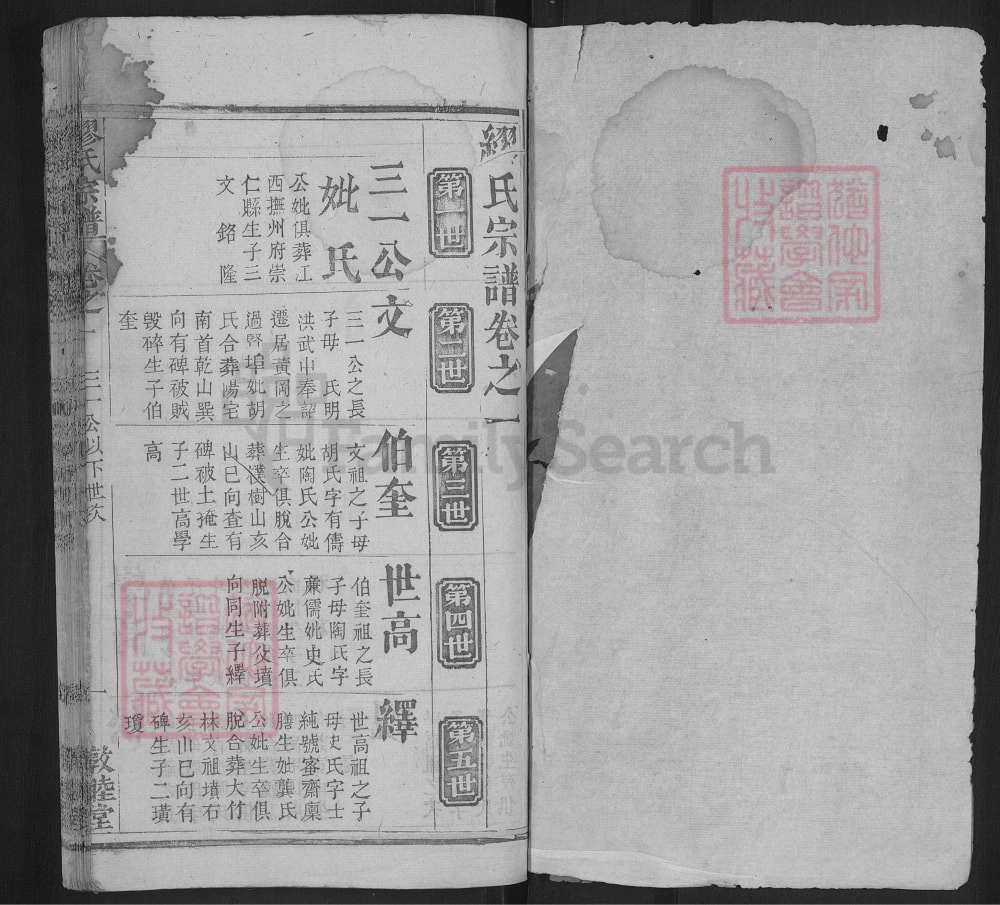 繆氏宗譜卷之一
第一世
第二世
第三世
第四世
第五世
三一公
妣氏
公妣俱葬江
西撫州府崇
仁縣生子三
文 銘 隆
文
三一公之長
子母 氏明
洪武中奉詔
遷居黃岡之
過路埠妣胡
氏合葬陽宅
南首乾山巽
向有碑被賊
毀碎生子伯
奎
伯奎
文祖之子母
胡氏字有儔
妣陶氏公妣
生卒俱脫合
葬樸樹山亥
山巳向查有
碑破土掩生
子二世高學
高
世高
伯奎祖之長
子母陶氏字
廉儒妣史氏
公妣生卒俱
脫附葬父墳
向同生子繹
繹
世高祖之子
母史氏字士
純號審齋廩
膳生妣龔氏
公妣生卒俱
脫合葬大竹
林文祖墳右
亥山巳向有
碑生子二璜
瓊
繆氏宗譜 卷之一 三一公以下世次 一 敦睦堂
FamilySearch